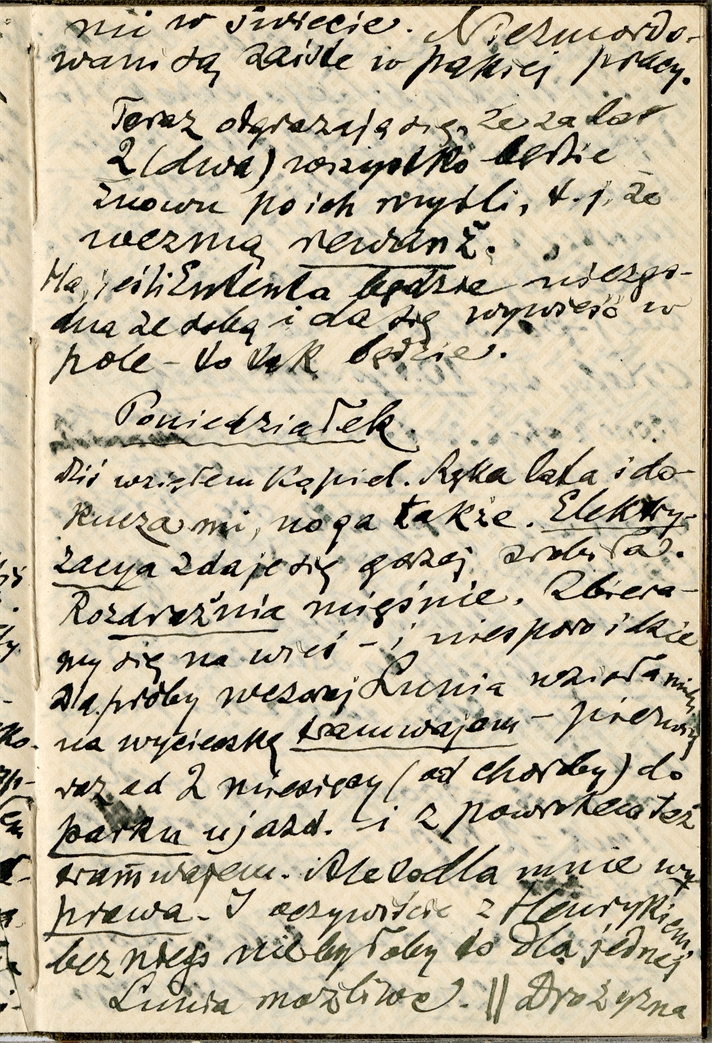 mi w świecie. Niezmordo-
wani są zaiste w pąkiej pracy.
Teraz odgrażają się, że za lat
2 (dwa) wszystko będzie
znowu po ich myśli, t.j. że
wezmą rewanż.
Ha, jeśli Ententa będzie niezgo-
dna ze sobą i da się wywieść w
pole – to tak będzie.
Poniedziałek.
Dziś wziąłem kąpiel. Ręka lata i do-
kucza mi, noga także. Elektry-
zacya zdaje się gorzej zrobiła.
Rozdrażnia mięśnie. Zbiera-
my się na wieś – i niesporo idzie
Dla próby wczoraj Lunia wzięła mię
na wycieczkę tramwajem – pierwszy
raz od 2 miesięcy (od choroby) do
parku ujazd. – i z powrotem też
tramwajem. Ale to dla mnie wy-
prawa. I oczywiście z Henrykiem
bez niego nie byłoby to dla jednej
Lunia możliwe. || Drożyzna